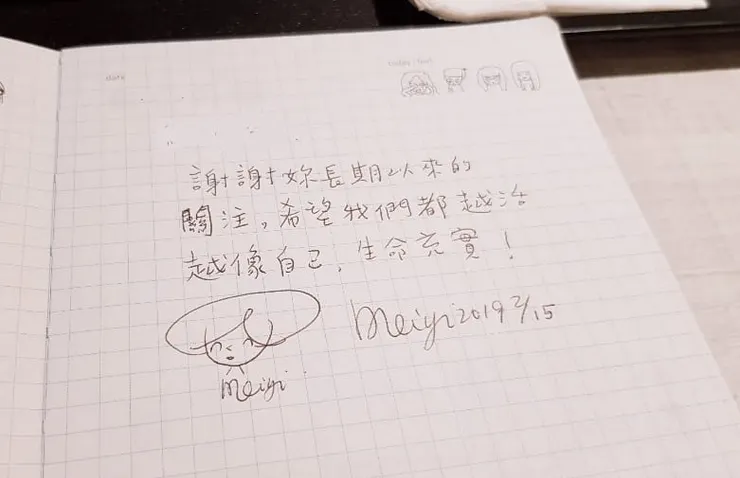 date
today feel
謝謝妳長期以來的
關注,希望我們都越活
越像自己,生命充實!
meiyi 2019 2/15
meiyi